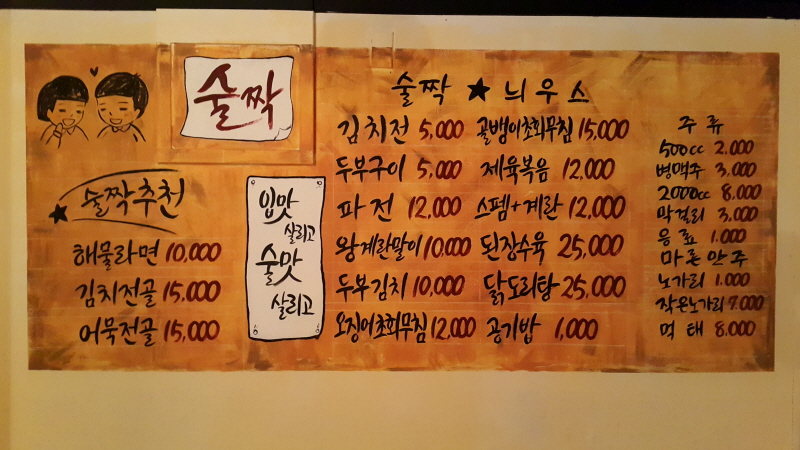 술짝
술짝추천
해물라면 10,000
김치전골 15,000
어묵전골 15,000
입맛
살리고
술맛
살리고
술짝 ★ 늬우스
김치전 5,000
두부구이 5,000
파전 12,000
왕계란말이 10,000
두부김치 10,000
오징어초회무침 12,000
골뱅이초회무침 15,000
제육볶음 12,000
스펨+계란 12,000
된장수육 25,000
닭도리탕 25,000
공기밥 1,000
주류
500cc 2.000
병맥주 3.000
2000cc 8.000
막걸리 3,000
음료 1.000
마른안주
노가리 1.000
작은노가리 7.000
먹태 8.000